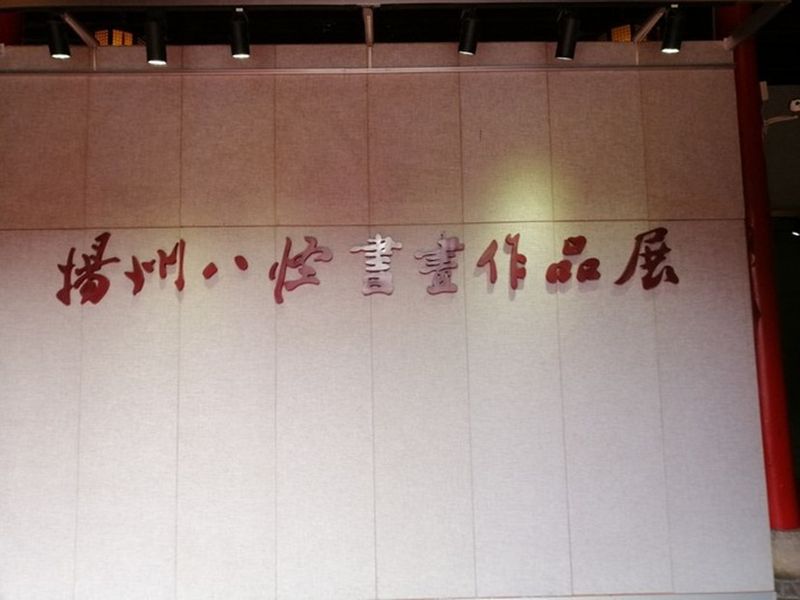 揚州八怪書畫作品展